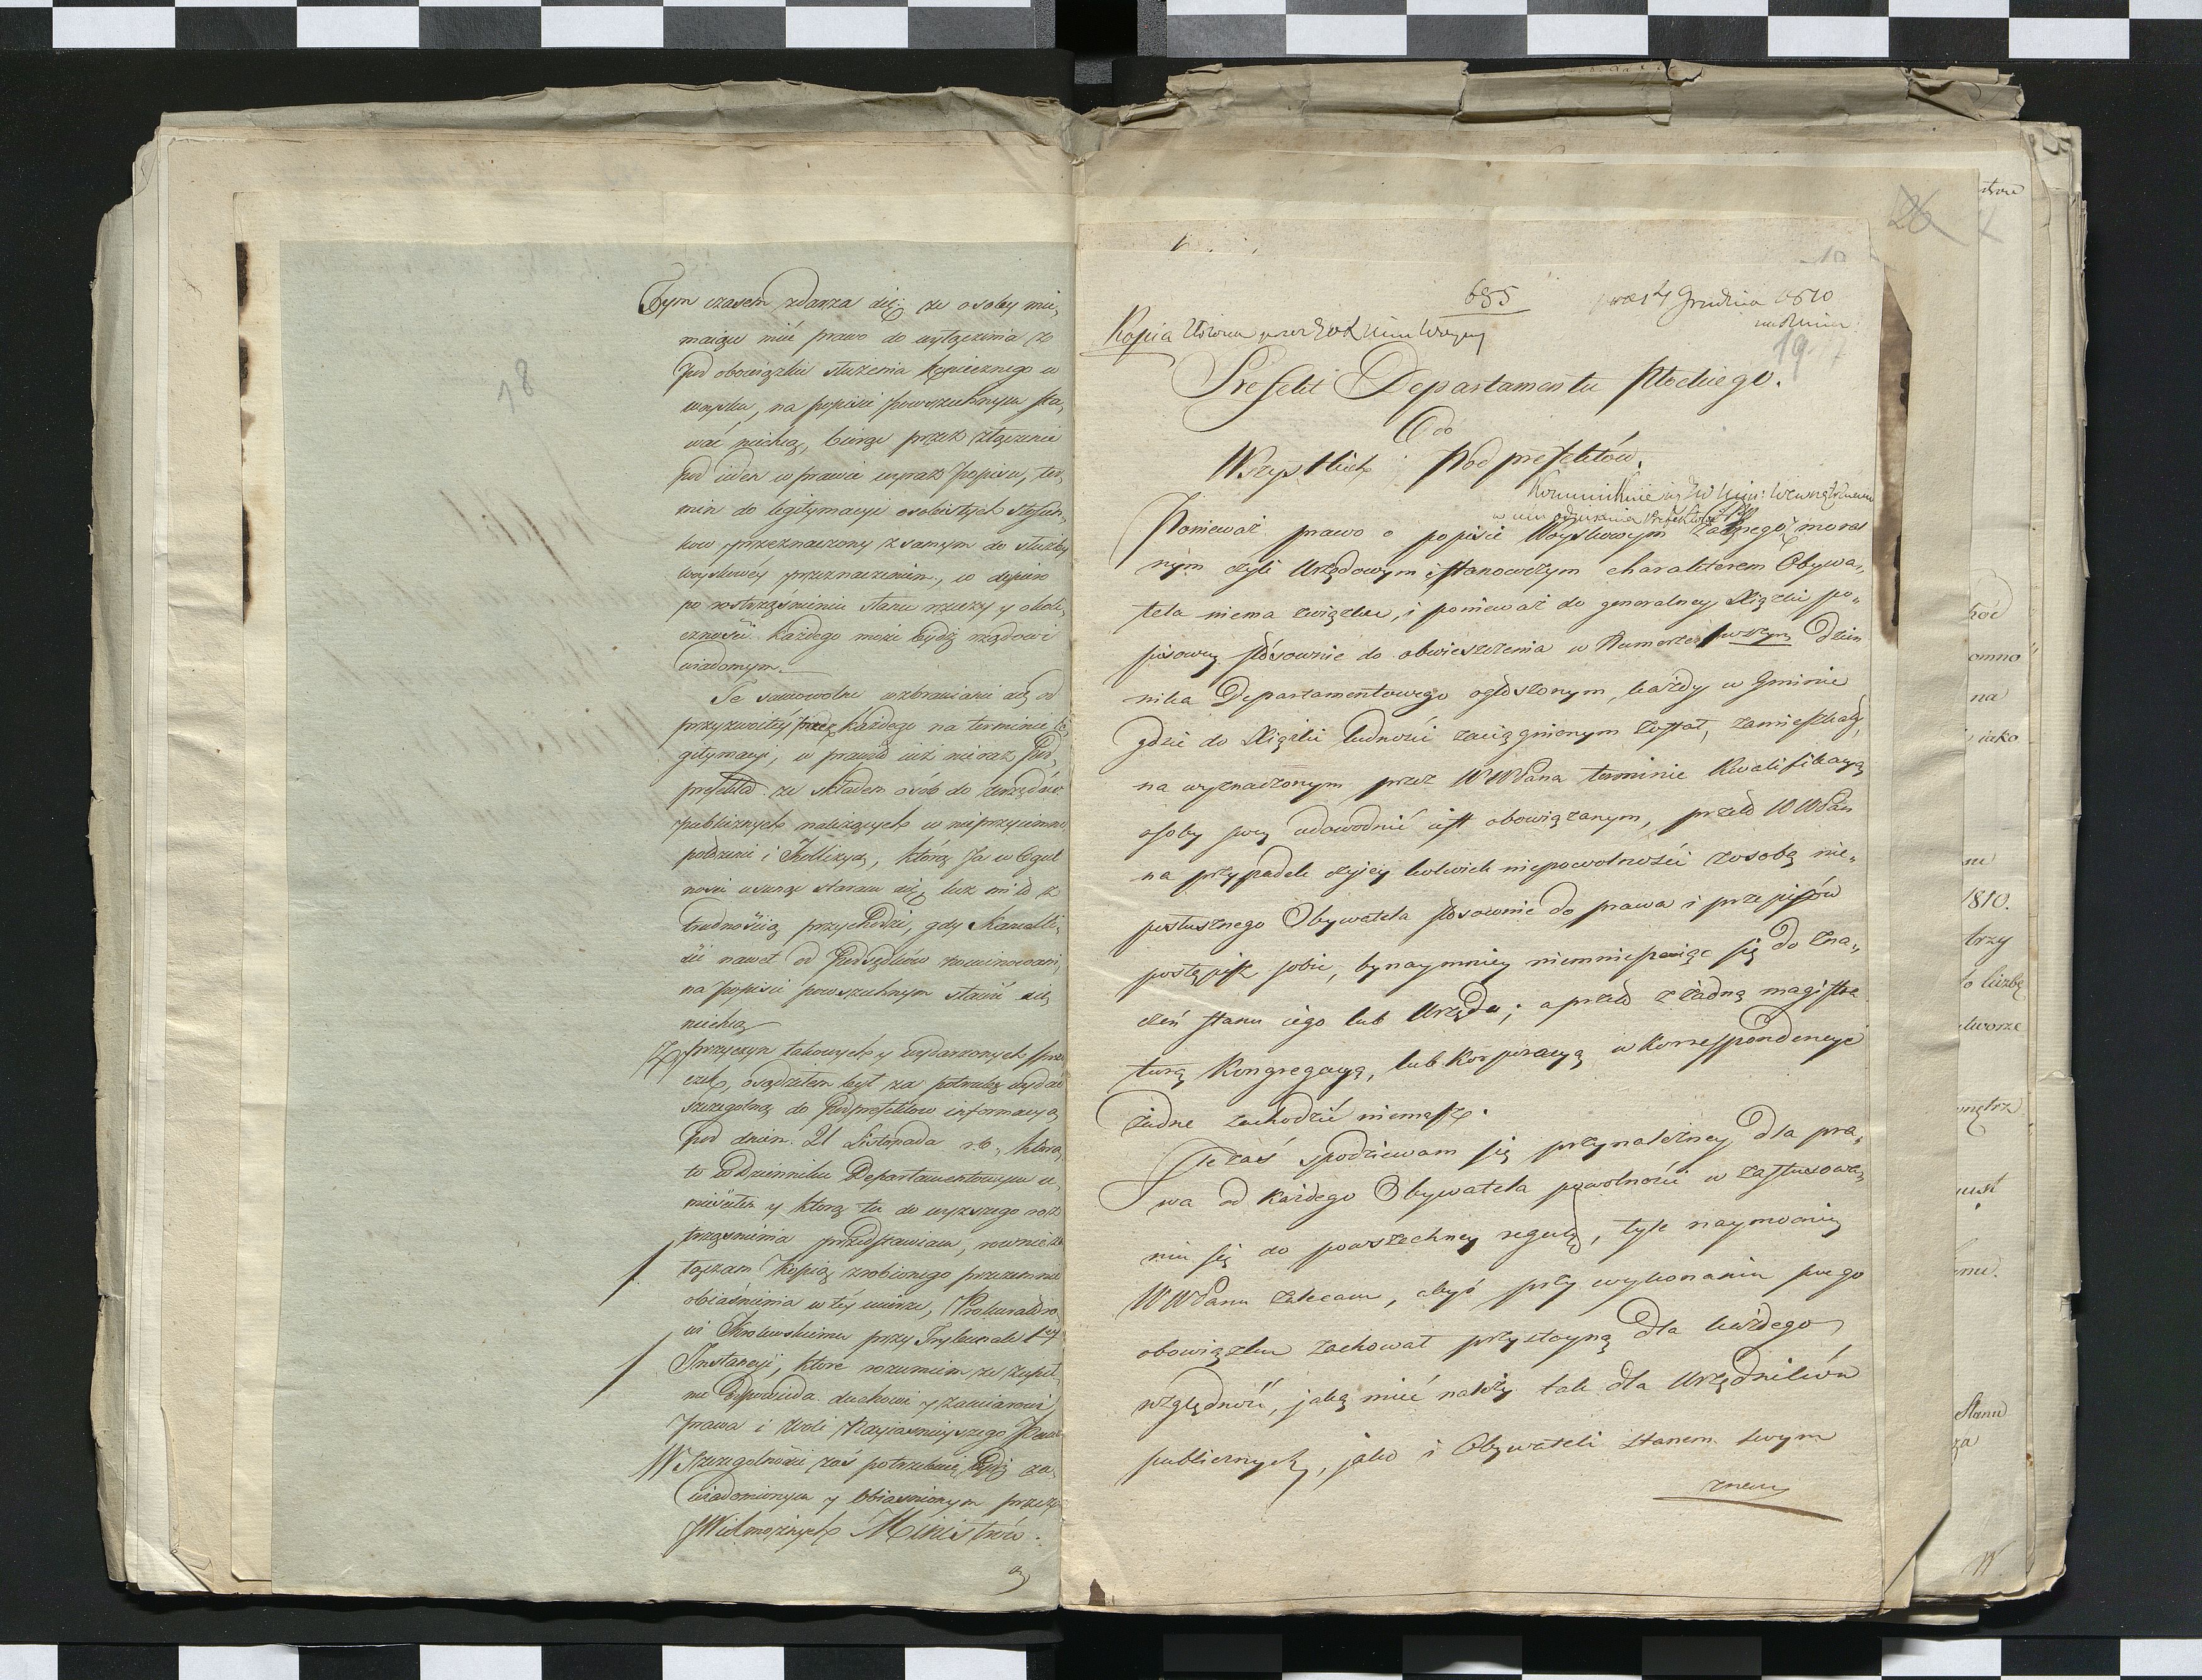 18
Tym czasem zdarza się; że osoby mie,
maiące mieć prawo do wyłączenia z
pod obowiązku służenia koniecznego w
woysku, na popisie powszechnym sta,
wać niechcą, biorąc przez złączenie
pod ieden w prawie wyraz popisu, ter,
min do legitymacyi osobistych stosun,
kow przeznaczony z samym do służby
woyskowéy przeznaczeniem, co dopiero
po rostrząśnieniu stanu rzeczy y okoli,
czności każdego może bydź rządowi
wiadomym.
Te samowolne wzbranianie się od
przyzwoitéy przez każdego na terminie le,
gitymacyi, w prawia iuż nie raz Pod,
prefekta ze składem osób do urzędów
publicznych należących w nieprzyiemne
położenie i kollizyą, którą Ja w Ogul
ności usunąć staram się, lecz mi to z
trudnością przychodzi, gdy Kancelli,
ści nawet od Podsędków nominowani,
na popisie powszechnym stawić się
niechcą
Z przyczyn takowych y wydarzonych sprze
czek, osądziłem bydź za potrzebę wydać
szczególną do Podprefektow informacyą
pod dniem 21 Listopada r.b., którą
to w Dzienniku Departamentowym u,
mieściłem y którą tu do wyższego roz
trząśnienia przedstawiam, rownież za
łączam kopią zrobionego przezemnie
obiaśnienia w téy mierze, Prokuratoro,
wi Krolewskiemu przy Trybunale 1éy
Instancyi, które rozumiem że zupeł,
nie odpowiada duchowi y zamiarowi
Prawa i Woli Nayiaśnieyszego Pana
W Szczególności zaś potrzebuię bydź za,
wiadomionym y obiaśnionym przez
JWielmożnych Ministrów.
a,
26
685
14 Grudnia 1810
19
Kopia
Prefekt Departamentu Płockiego.
Do
Wszystkich Podprefektów.
Ponieważ prawo o popisie Woyskowym żadnego z moral
nym czyli Urzędowym i stanowczym charakterem Obywa,,
tela niema związku, i ponieważ do generalney Xiążki po,,
pisowey stosownie do obwieszczenia w Numerze pierwszym Dzien
nika Departamentowego ogłoszonym, każdy w Gminie
gdzie do Xiążki ludności zaciągnionym został, zamieszkały,
na wyznaczonym przez WWPana terminie kwalifikacyą
osoby swey udowodnić iest obowiązanym, przeto WWPan
na przypadek czyiey kolwiek niepowolności z osobą nie,,
posłusznego Obywatela stosownie do prawa i przepisów
postąpisz sobie, bynaymniey niemnieszaiąc się do zna,,
czeń stanu iego lub Urzędu; a przeto z żadną magistra
turą Kongregacyą, lub Korporacyą w korrespondencye
żadne zachodzić niemasz.
Że zaś spodziewam się przynależney dla pra,,
wa od każdego Obywatela powolności w zastosowa,
niu się do powszechney reguły, tyle naymocniey
WWPanu zalecam, abyś przy wykonaniu swego
obowiązku zachował przystoyną dla każdego
względność, jaką mieć należy tak dla Urzędników
publicznych, jako i Obywateli stanem swym
znacz